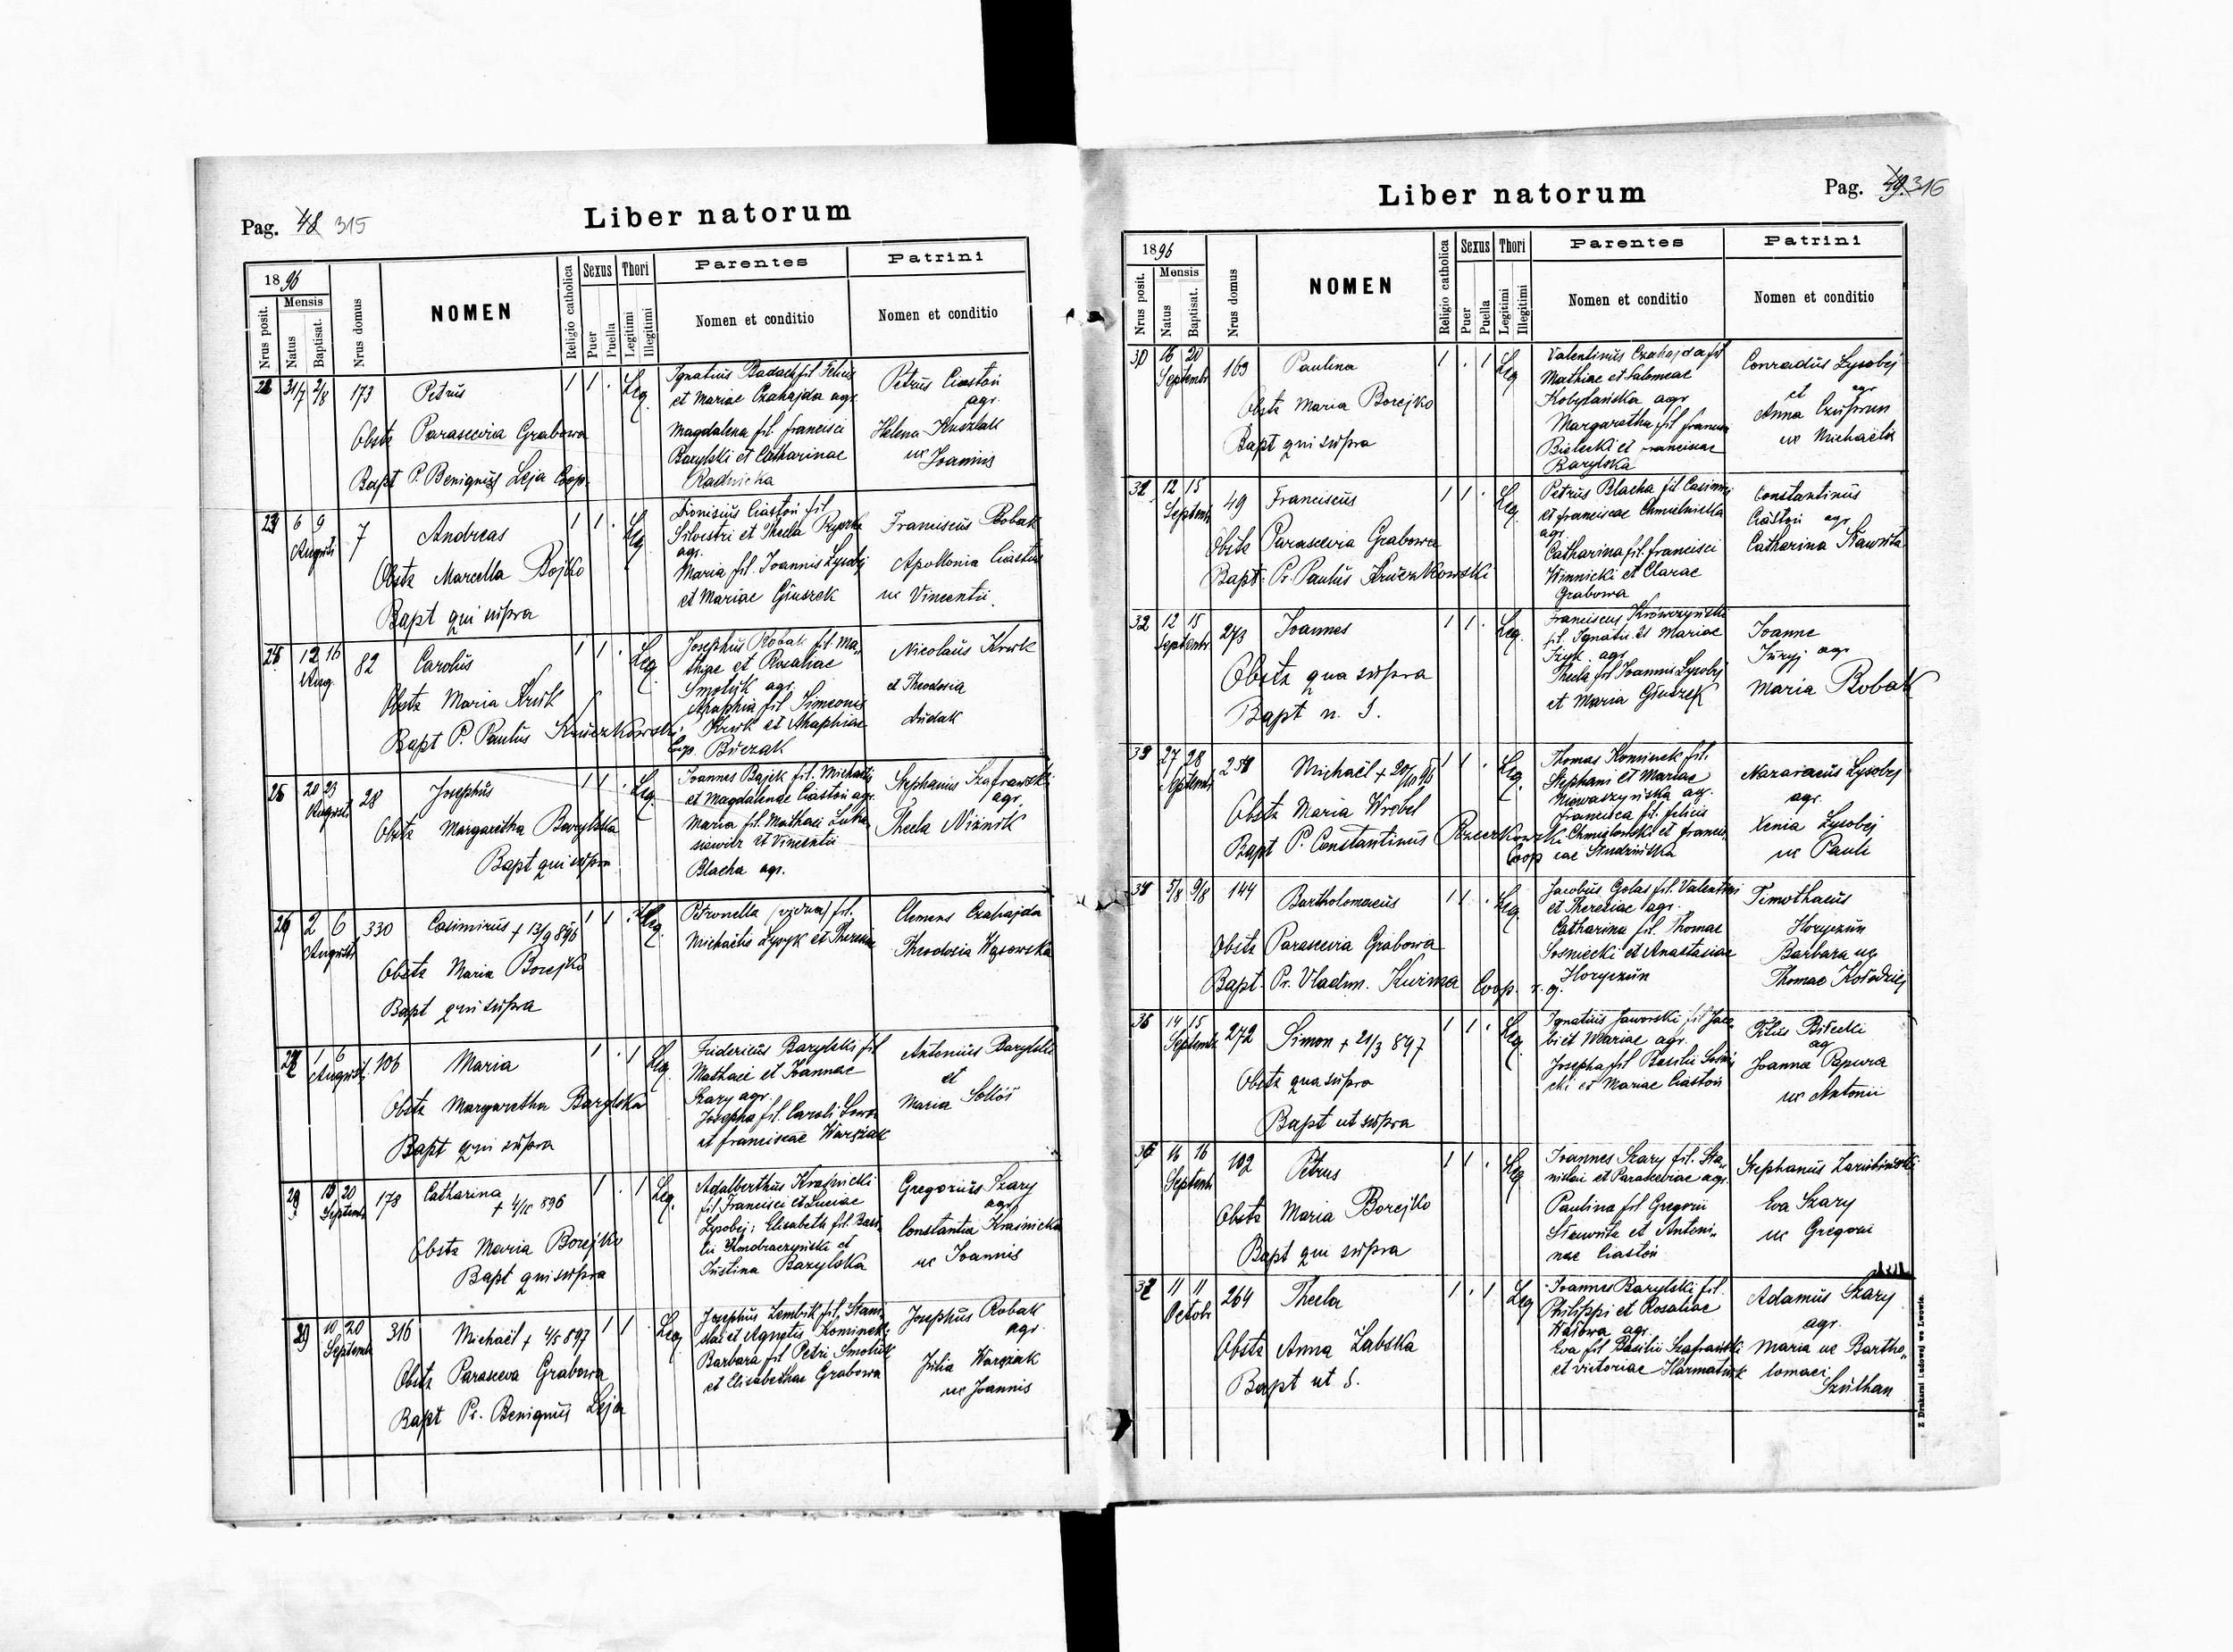 Pag. 48 315
Liber natorum
1896
Nrus posit.
Mensis
Natus
Baptisat.
Nrus domus
NOMEN
Religio catholica
Sexus
Puer
Puella
Thori
Legitimi
Illegitimi
Parentes
Nomen et conditio
Patrini
Nomen et conditio
31/7 2/8 173 Petrus 1 1 . Leg.
Obstx Parascevia Grabowa
Bapt P. Benignus Leja Coop.
Ignatius Badach fil Felicis
et Mariae Czahajda agr.
Magdalena fil. Francisci
Barylski et Catharinae
Radnicka
Petrus Ciastoń
agr.
Helena Kusztak
ux Joannis
6 9 Augusti 7 Andreas 1 1 . Leg
Obstx Marcella Bojko
Bapt qui supra
Dionisius Ciastoń fil
Silvestri et Thecla
agr.
Maria fil. Joannis Lysobej
et Mariae Giuszek
Franciscus Robak
Apollonia Ciastoń
ux Vincentii.
12 16 Aug. 82 Carolus 1 1 . Leg.
Obstx Maria Kruk
Bapt P. Paulus Kruczkowski Cop.
Josephus Robak fil Ma„
thiae et Rosaliae
Smoluk agr.
Ahaphia fil Simeonis
Kruk et Ahaphiae
Buczak
Nicolaus Kruk
et Theodosia
Dudak
20 23 Augusti 28 Josephus 1 1 . Leg.
Obstx Margaritha Barylska
Bapt qui supra
Joannes Bajek fil. Michaelis
et Magdalenae Ciastoń agr.
Maria fil. Mathaei Luka
siewicz et Vincentii
Blacha agr.
Stephanus Szafrawski
agr.
Thecla Niznik
2 6 Augusti 330 Casimirus + 13/9 896 1 1 . Leg.
Obstx Maria Borejko
Bapt qui supra
Petronella (vidua) fil.
Michaelis Lyzyk et Theresiae
Clemens Czahajda
Theodosia Wąsowska
1 6 Augusti 106 Maria 1 . 1 Leg.
Obstx Margaretha Barylska
Bapt qui supra
Fridericus Barylski fil
Mathaei et Joannae
Szary agr.
Josepha fil. Caroli Sowa
et Franciscae Warsiak
Antonius Barylski
et
Maria Soltös
20 Septemb 178 Catharina 1 . 1 Leg.
+ 896
Obstx Maria Borejko
Bapt qui supra
Adalberthus Kraśnicki
fil Francisci et Luciae
Lysobej; Elisabeth fil. Basi
lii Kondraczyński et
Justina Barylska
Gregorius Szary
agr
Constantia Kraśnicka
ux Joannis
29 10 20 Septemb 316 Michaël + 4/5 897 1 1 Leg.
Obstx Parasceva Grabowa
Bapt Pr. Benignus Leja
Josephus Lembik fil. Stani
slai et Agnetis Kominek;
Barbara fil Petri Smoluk
et Elisabethae Grabowa
Josephus Robak
agr.
Julia Warsiak
ux Joannis
Liber natorum
Pag. 49. 316
1896
Nrus posit.
Mensis
Natus
Baptisat.
Nrus domus
NOMEN
Religio catholica
Sexus
Puer
Puella
Thori
Legitimi
Illegitimi
Parentes
Nomen et conditio
Patrini
Nomen et conditio
16 20 Septembr 169 Paulina 1 . 1 Leg
Obstx Maria Borejko
Bapt qui supra
Valentinus Czahajda fil
Mathiae et Salomeae
Kobylańska agr
Margaretha fil Francisci
Bielecki et Franciscae
Barylska
Conradus Lysobej
et agr
Anna Czuprun
ux Michaëlis
12 15 Septemb 49 Franciscus 1 1 . Leg.
Obstx Parascevia Grabowa
Bapt. Pr. Paulus Kruczkowski
Petrus Blacha fil Casimiri
et Franciscae Chmielnicka
agr.
Catharina fil. Francisci
Winnicki et Clarae
Grabowa
Constantinus
Ciastoń agr
Catharina Sławuta
32 12 15 Septembr 273 Joannes 1 1 . Leg.
Obstx qua supra
Bapt n. S.
Franciscus Krówczyński
fil. Ignatii et Mariae
agr
Thecla fil Joannis Lysobej
et Maria Giuszek
Joanne
Juryj agr
Maria Robak
27 28 Septemb Michaël + 20/10 96 1 1 . Leg.
Obstx Maria Wrobel
Bapt P. Constantinus Coop
Thomas Kominek fil.
Stephani et Mariae
Nowaczyńska agr.
Francisca fil. Felicis
Chmielowski et Francis„
cae Studzińska
Nazaraeus Lysobej
agr.
Xenia Lysobej
ux Pauli
5/8 9/8 144 Bartholomaeus 1 1 . Leg.
Obstx Parascevia Grabowa
Bapt. Pr. Vladim. Kuzma Coop. r. g.
Jacobus Golas fil. Valentini
et Theresiae agr.
Catharina fil. Thomae
Sosniecki et Anastasiae
Horyczun
Timothaeus
Horyczun
Barbara ux
Thomae Kołodziej
14 15 Septemb 272 Simon + 21/3 897 1 1 . Leg
Obstx qua supra
Bapt ut supra
Ignatius Jaworski fil Jaco
bi et Mariae agr.
Josepha fil Basilii Sośnie
cki et Mariae Ciastoń
Titus Bilecki
ag
Joanna Papura
ux Antonii
16 16 Septemb 102 Petrus 1 1 . Leg
Obstx Maria Borejko
Bapt qui supra
Joannes Szary fil. Sta„
nislai et Parasceviae agr.
Paulina fil Gregorii
Sławuta et Antoni„
nae Ciastoń
Stephanus Zarubinski
Eva Szary
ux Gregorii
11 11 Octobr 264 Thecla 1 . 1 Leg
Obstx Anna Labska
Bapt ut S.
Joannes Barylski fil.
Philippi et Rosaliae
Wąsowa agr.
Eva fil Basilii Szafrański
et Victoriae Harmatiuk
Adamus Szary
agr.
Maria ux Bartho„
lomaei
Szulhan
Z Drukarni Ludowej we Lwowie.